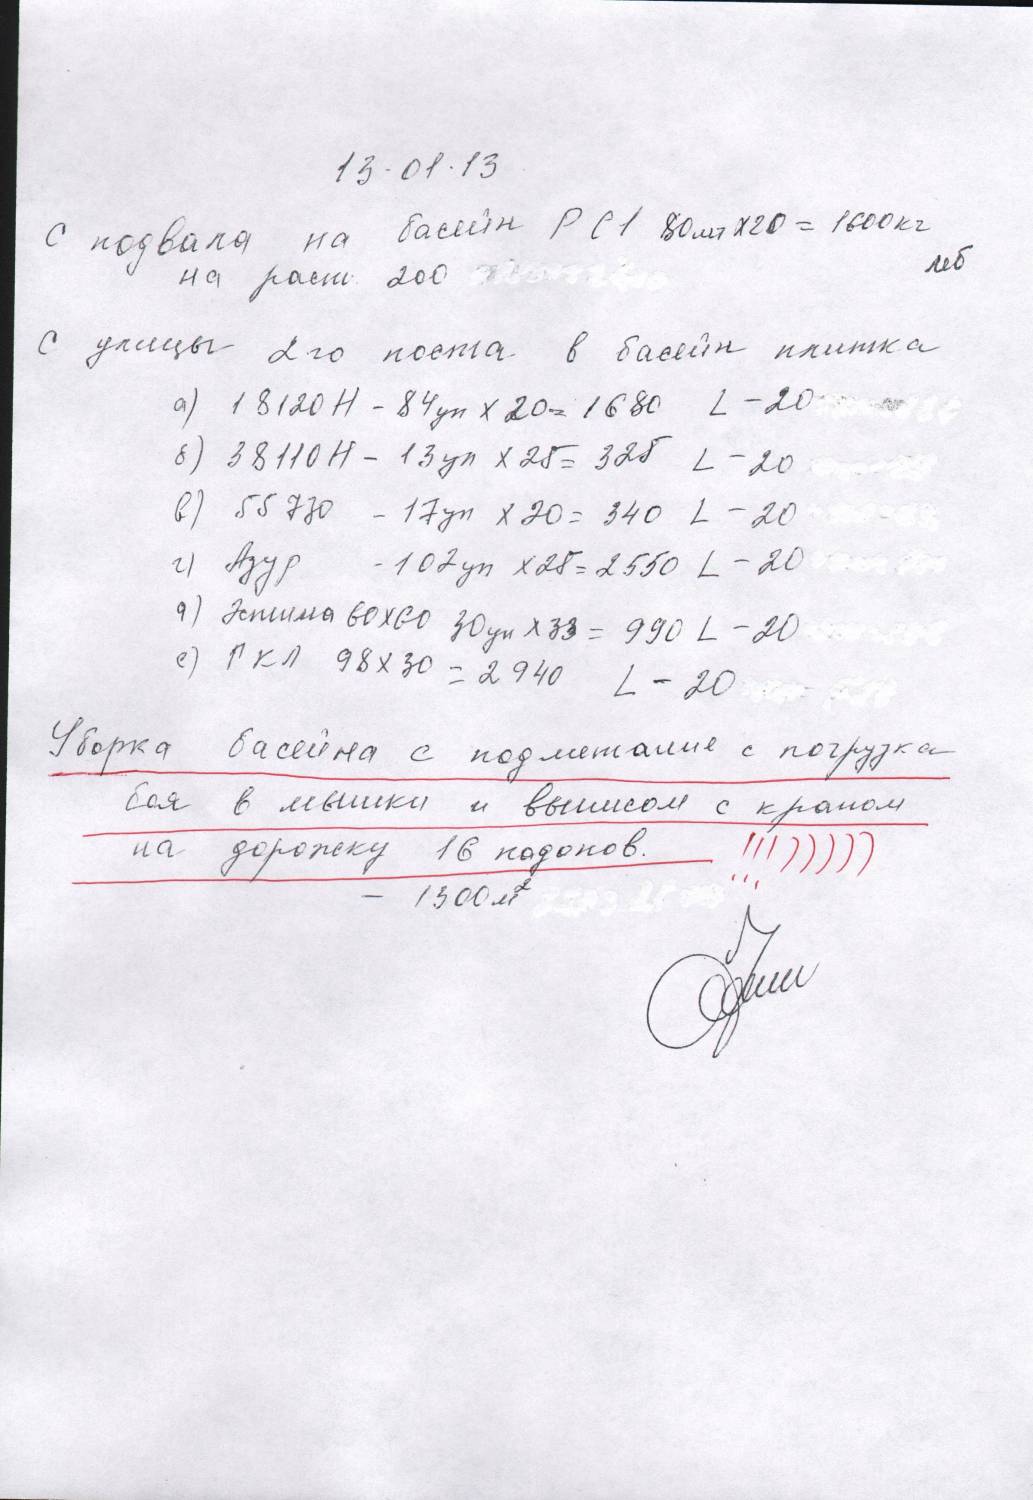 13.01.13
С подвала на басейн РС1 80мт х20 = 1600кг
на раст. 200 леб
С улицы 2го поста в басейн плитка
а) 18120Н - 84уп х 20 = 1680 L - 20
б) 38110Н - 13уп х 25 = 325 L - 20
в) 55730 - 17уп х 20 = 340 L - 20
г) Азур - 102уп х25 = 2550 L - 20
д) Эстима 60х60 30уп х 33 = 990 L - 20
е) ГКЛ 98х30 = 2940 L - 20
Уборка басейна с подметание с погрузка
боя в мешки и выносом с краном
на дорожку 16 падонов. !!!)))))
- 1300м²